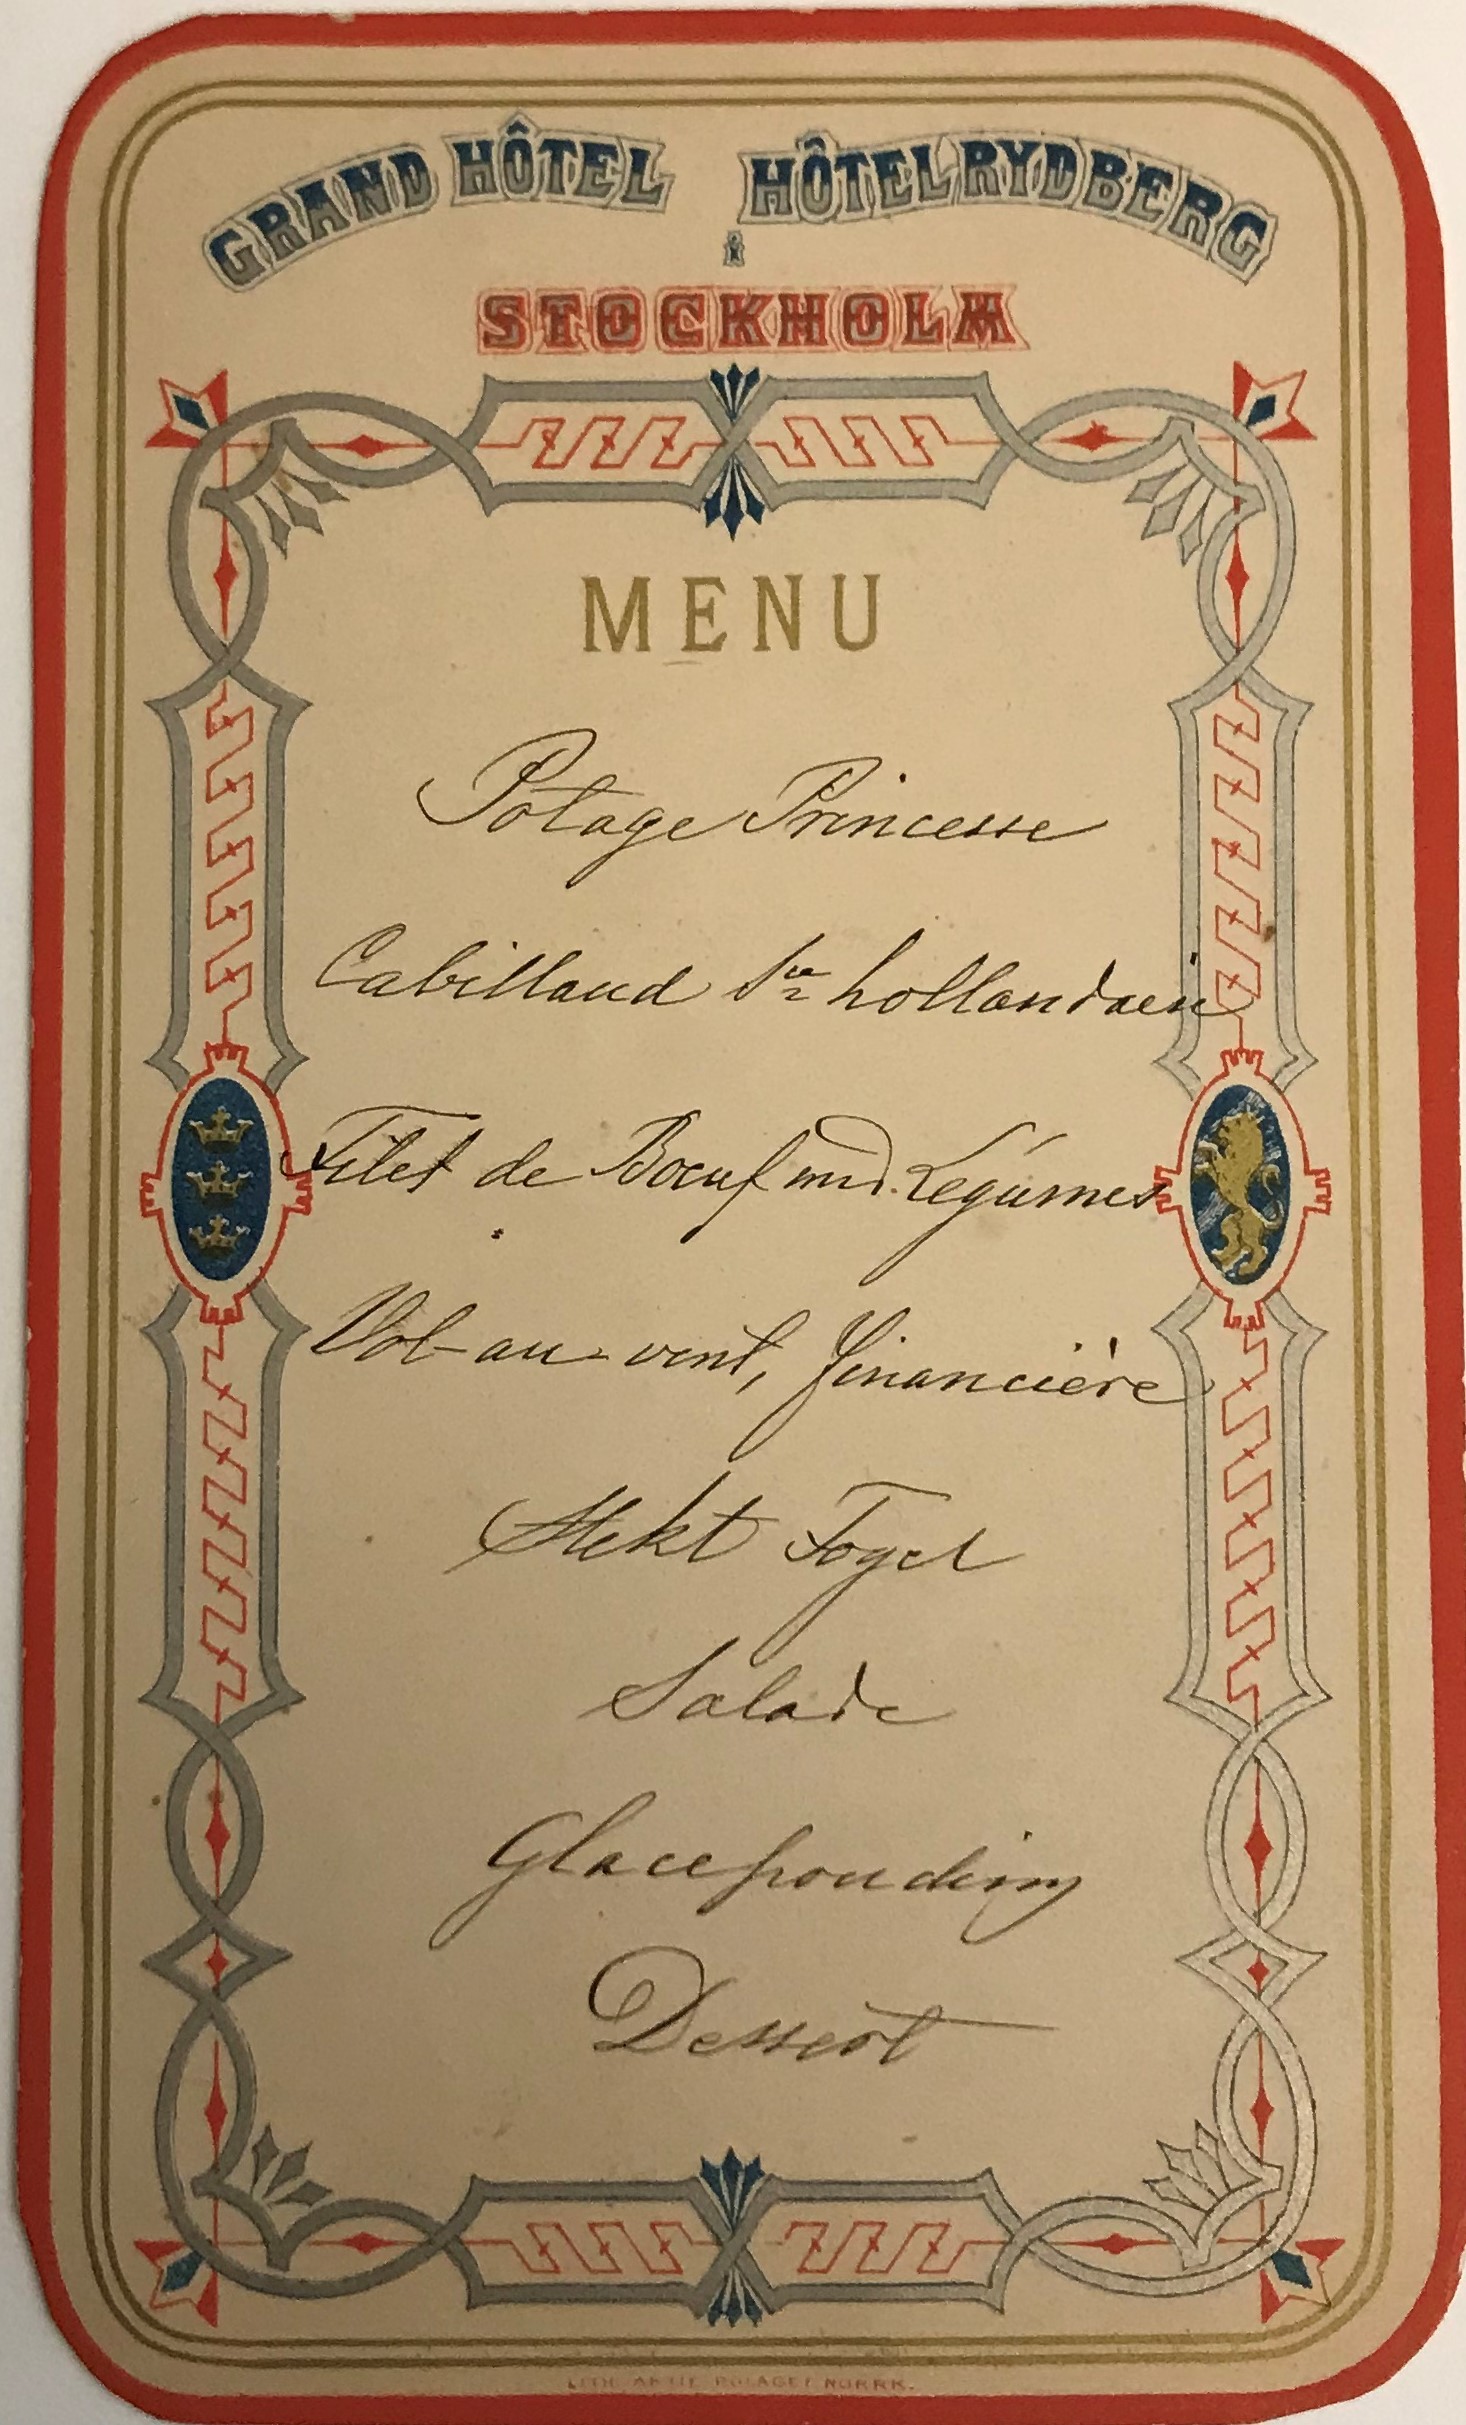 GRAND HÔTEL HÔTEL RYDBERG
i
STOCKHOLM
MENU
Potage Princesse
Cabilland Sce hollandaein
Filet de Boeuf med Légumes
Vol-au-vent, financière
Stekt Fogel
Salade
Glacepouding
Dessert
LITH. AKTIE BOLAGET NORRK.